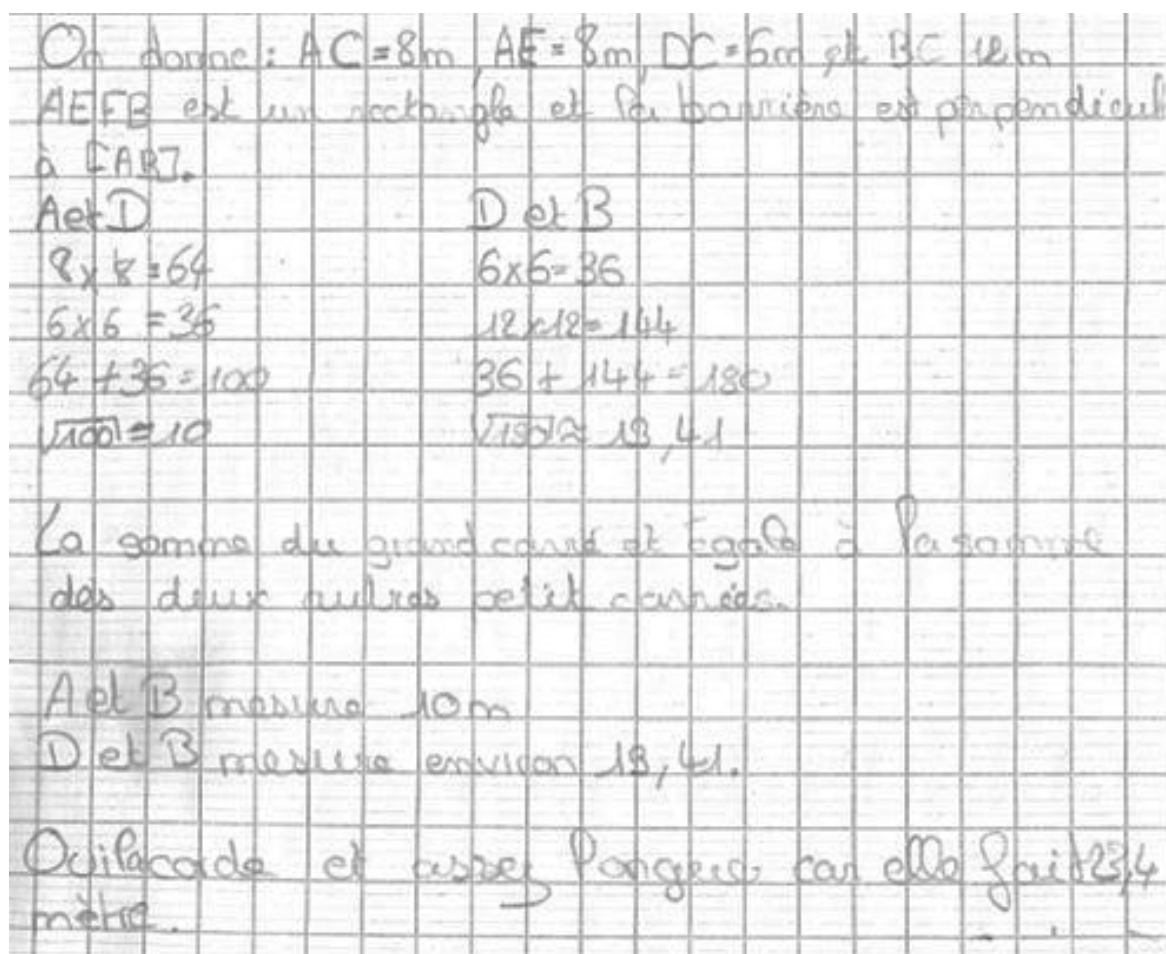 On donne : AC = 8m, AE = 8m, DC = 6m et BC 12m
AEFB est un rectangle et la barrière est perpendicul
à [AB].
A et D D et B
8 x 8 = 64 6x6 = 36
6 x 6 = 36 12x12 = 144
64 + 36 = 100 36 + 144 = 180
√100 = 10 √180 ≈ 13,41
La somme du grand carré et égale à la somme
des deux autres petit carrées.
A et B mesure 10m
D et B mesure environ 13,41.
Oui la corde et assez longue car elle fait 23,4
mètre.